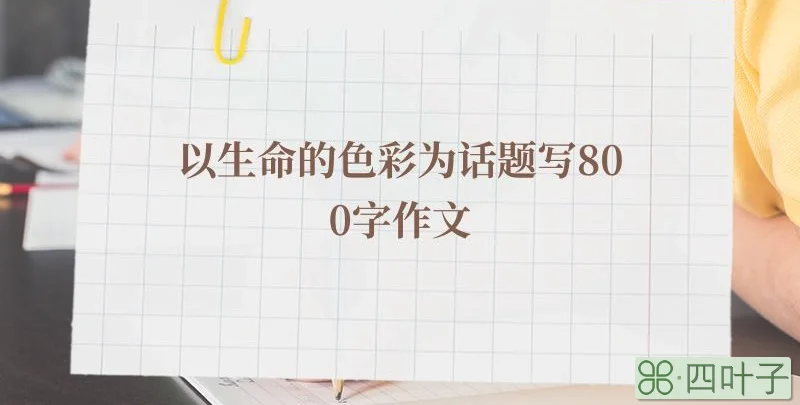 以生命的色彩为话题写80
0字作文
四叶子